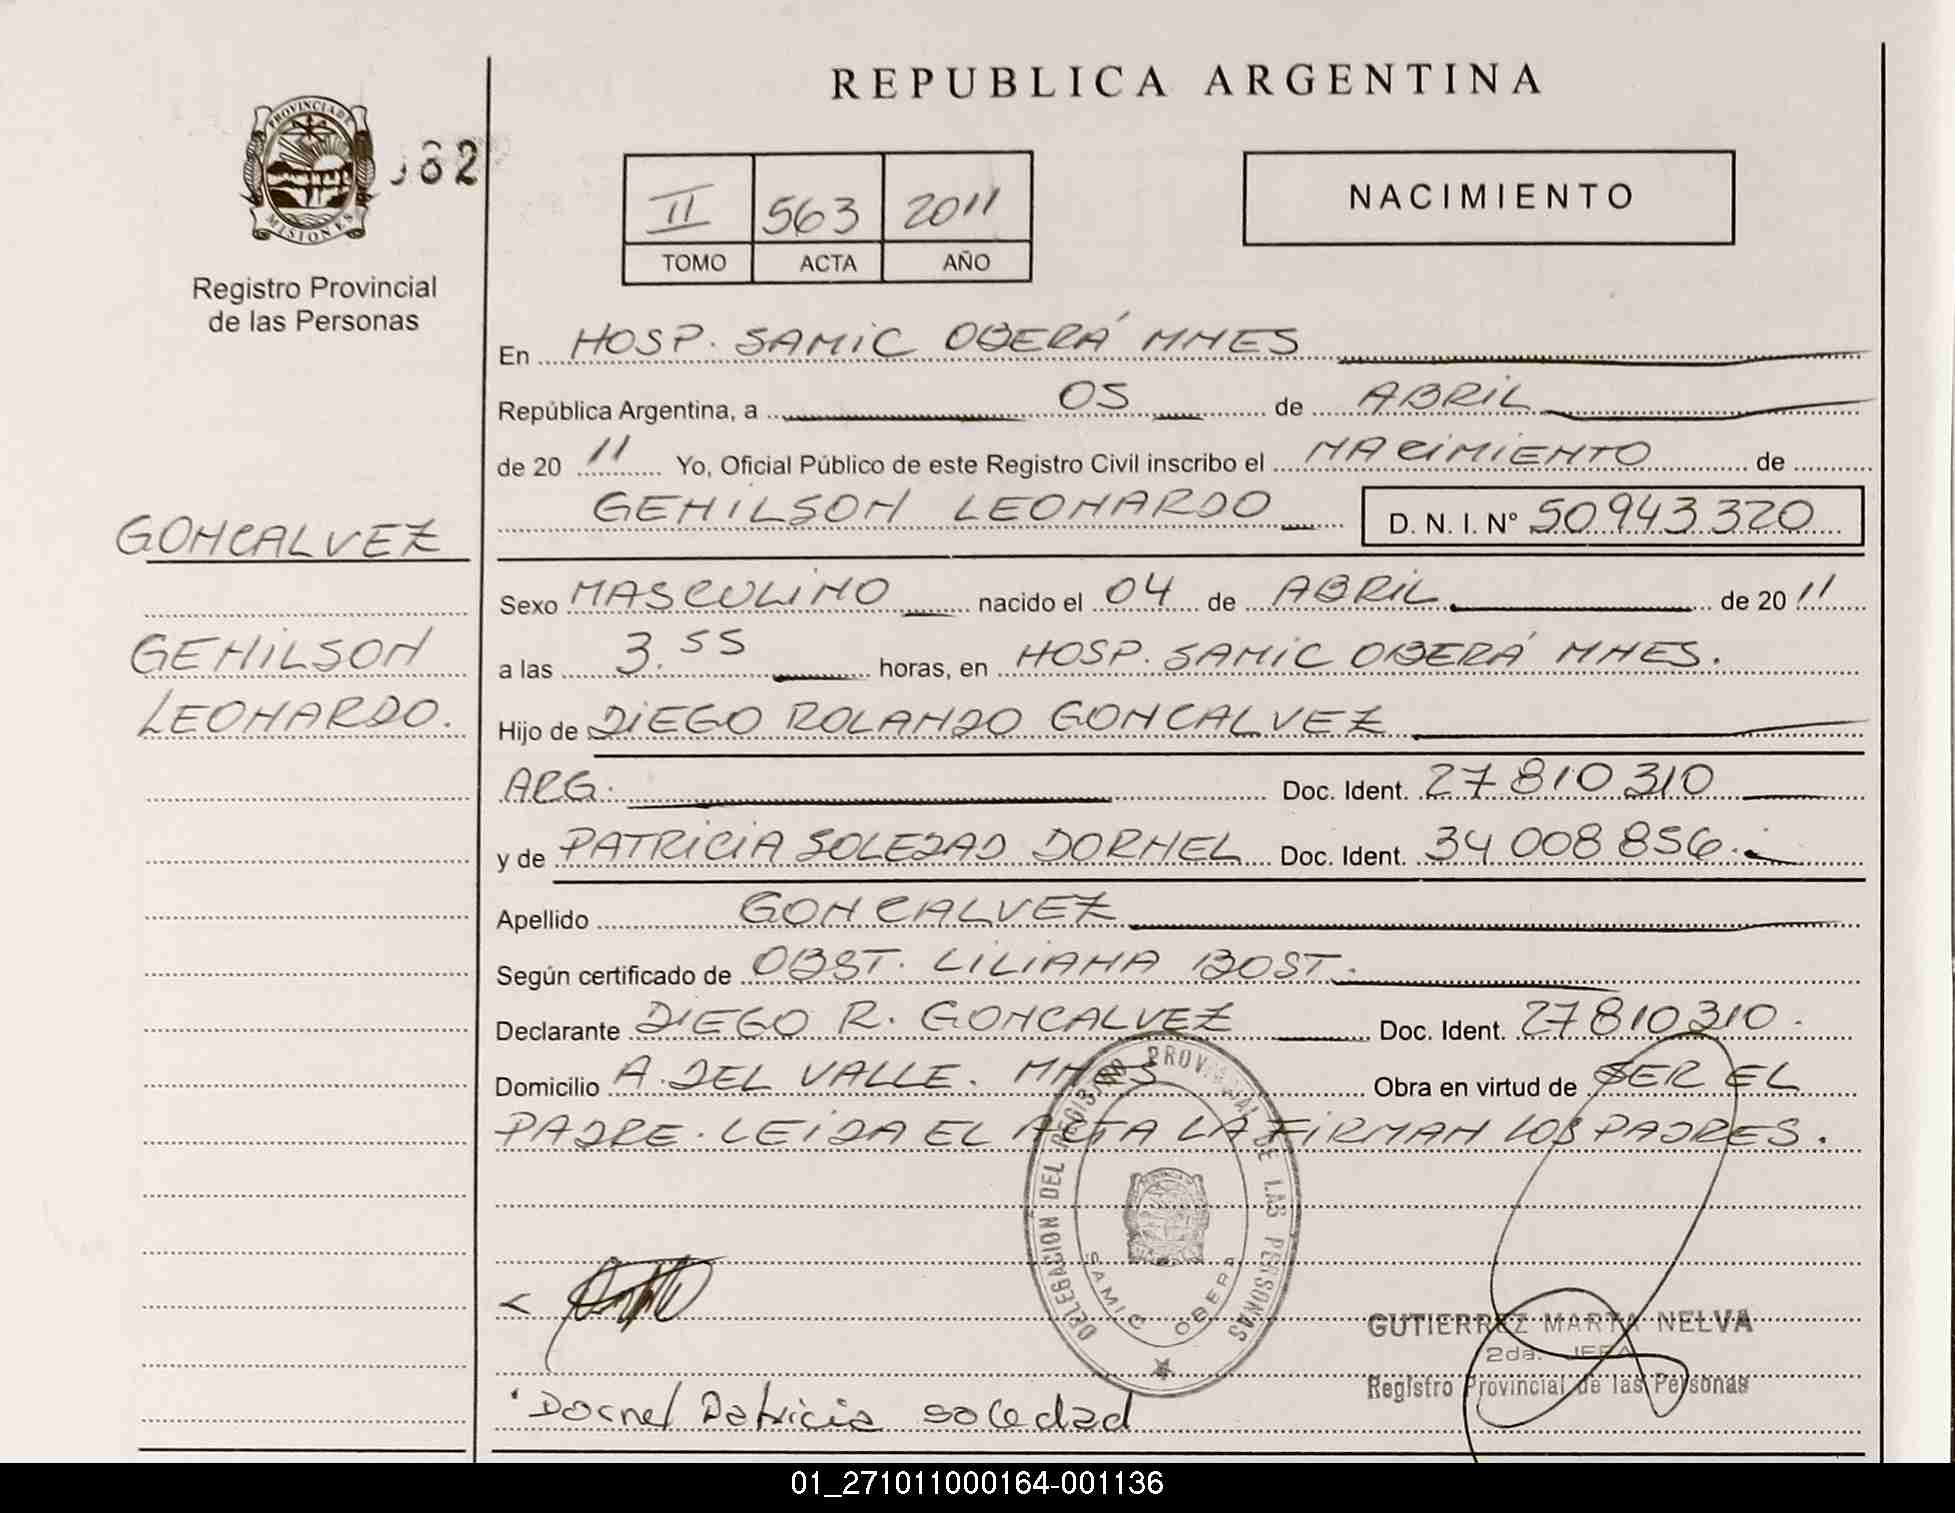 PROVINCIA DE
MISIONES
Registro Provincial
de las Personas
GONCALVEZ
GENILSON
LEONARDO.
REPUBLICA ARGENTINA
II 563 2011
TOMO ACTA AÑO
NACIMIENTO
En HOSP. SAMIC OBERÁ MNES
República Argentina, a 05 de ABRIL
de 20 11 Yo, Oficial Público de este Registro Civil inscribo el NACIMIENTO de
GENILSON LEONARDO D. N. I. N° 50943320
Sexo MASCULINO nacido el 04 de ABRIL de 20 11
a las 3.55 horas, en HOSP. SAMIC OBERÁ MNES.
Hijo de DIEGO ROLANDO GONCALVEZ
ARG. Doc. Ident. 27810310
y de PATRICIA SOLEDAD DORNEL Doc. Ident. 34008856.
Apellido GONCALVEZ
Según certificado de OBST. LILIANA BOST.
Declarante DIEGO R. GONCALVEZ Doc. Ident. 27810310.
Domicilio A. DEL VALLE. MNES Obra en virtud de SER EL
PADRE. LEIDA EL ACTA LA FIRMAN LOS PADRES.
DELEGACION DEL REGISTRO PROVINCIAL DE LAS PERSONAS
SAMIC OBERA
GUTIERREZ MARTA NELVA
2da. JEFA
Registro Provincial de las Personas
Dornel Patricia Soledad
01_271011000164-001136